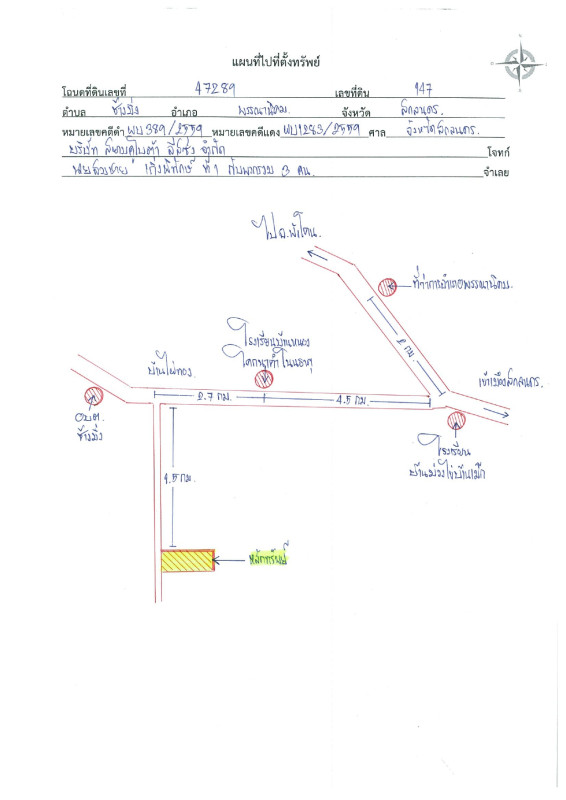 แผนที่ไปที่ตั้งทรัพย์
โฉนดที่ดินเลขที่ 47289 เลขที่ดิน 147
ตำบล ช้างมิ่ง อำเภอ พรรณานิคม จังหวัด สกลนคร.
หมายเลขคดีดำ ผบ 389/2559 หมายเลขคดีแดง ผบ1283/2559 ศาล จังหวัดสกลนคร.
บริษัท สยามคูโบต้า ลีสซิ่ง จำกัด โจทก์
ที่ 1 กับพวกรวม 3 คน. จำเลย
ไป อ.
ที่ว่าการอำเภอพรรณานิคม.
2 กม.
โรงเรียนบ้านหนอง
บ้านไผ่ทอง.
เข้าเมืองสกลนคร.
2.7 กม.
4.5 กม.
อบต.
ช้างมิ่ง
โรงเรียน
1.5 กม.
หลักทรัพย์